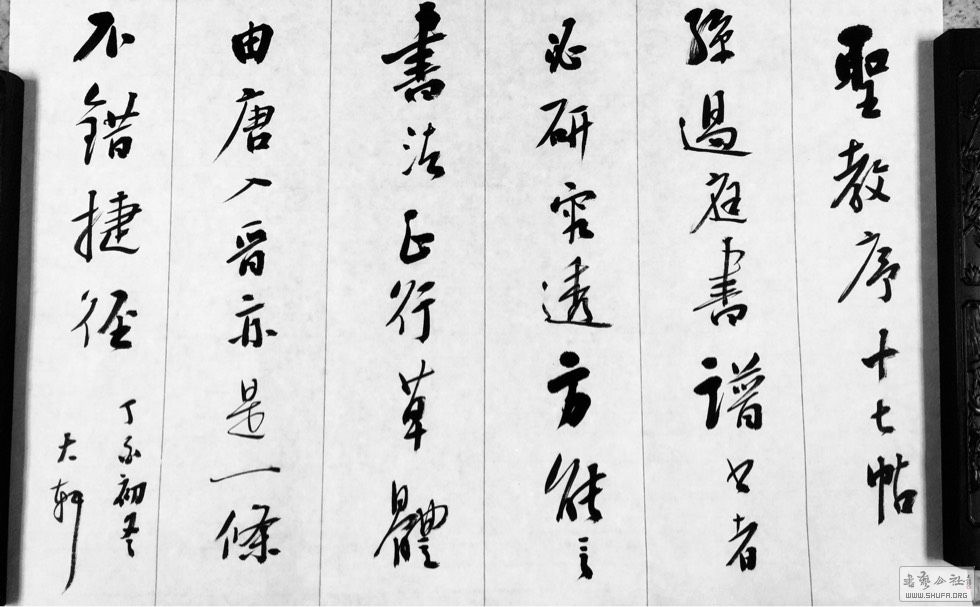 聖教序十七帖
孫過庭書譜者
必研究透方能言
書法正行草體
由唐入晉亦是一條
不錯捷徑
丁亥初
大軒
書藝公社
WWW.SHUFA.ORG